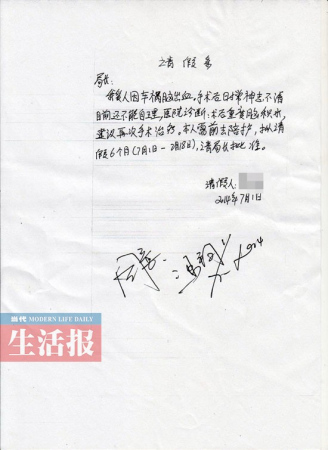 请假条
局长:
因车祸脑出血,手术后日常神志不清
目前还不能自理,医院诊断:术后重度脑积水,
建议再次手术治疗。本人需前去陪护,拟请
假6个月(7月1日-
),请局长批准。
请假人:
2014年7月1日
同意.
当代 MODERN LIFE DAILY
生活报